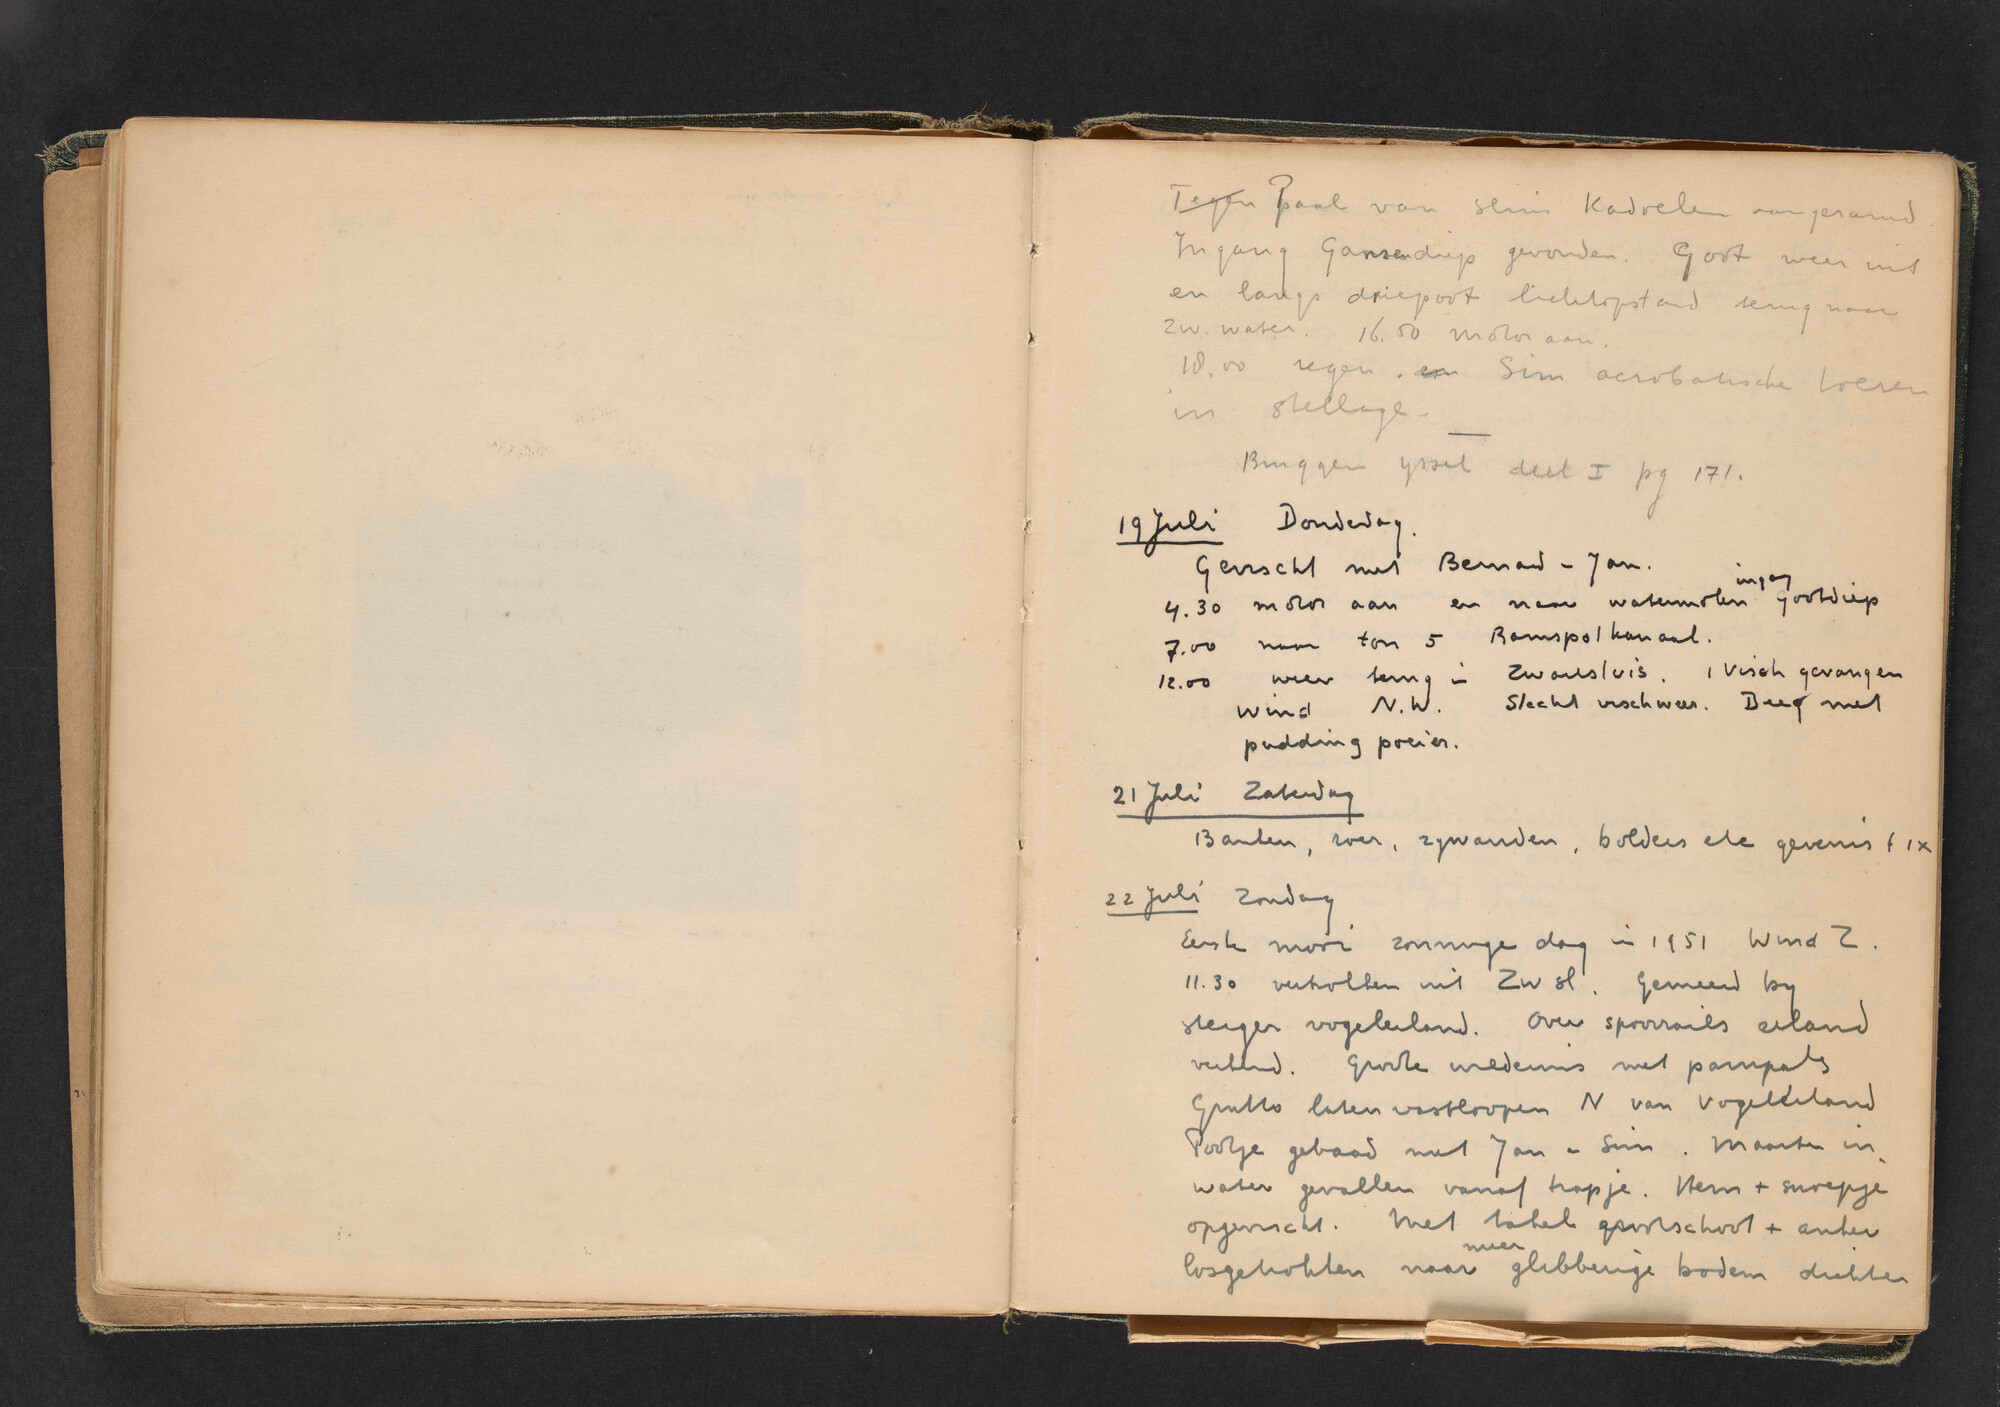 Tegen Paal van sluis Kadoelen aangeramd
Ingang Gansendiep gevonden. Goot weer uit
en langs driepoot lichtopstand terug naar
zw. water. 16.50 motor aan.
18.00 regen. en Sim acrobatische toeren
in stellage.
Bruggen yssel deel I pg 171.
19 Juli Donderdag.
Gevischt met Bernard - Jan.
4.30 motor aan en naar watermolen ingang Gootdiep
7.00 naar ton 5 Ramspolkanaal.
12.00 weer terug in Zwartsluis. 1 Visch gevangen
wind N.W. Slecht vischweer. Deeg met
pudding poeier.
21 Juli Zaterdag
Banken, roer, zywanden, bolders etc gevernist 1x
22 Juli Zondag
Eerste mooi zonnige dag in 1951 Wind Z.
11.30 vertrokken uit Zw sl. Gemeerd by
steiger vogeleiland. Over spoorrails eiland
verkend. Groote wildernis met pampats
Grutto laten vastloopen N van Vogeleiland
Pootje gebaad met Jan - Sim. Maarten in
water gevallen vanaf trapje. Hem + snoepje
opgevischt. Met takel grootschoot + anker
losgetrokken naar meer glibberige bodem dichter